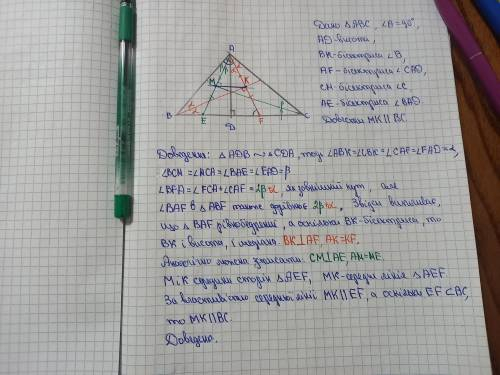 A
M
K
B
E
D
F
C
Дано △ABC, ∠B=90°,
AD-висота,
BK-бісектриса ∠B,
AF-бісектриса ∠CAD,
CM-бісектриса ∠C
AE-бісектриса ∠BAD
Довести MK||BC.
Доведення: △ADB ~ △CDA, тоді ∠ABK=∠CBK=∠CAF=∠FAD=α,
∠BCM=∠MCA=∠BAE=∠EAD=β
∠BFA=∠FCA+∠CAF=2β+α, як зовнішній кут, але
∠BAF в △ABF також дорівнює 2β+α. Звідси випливає,
що △BAF рівнобедрений, а оскільки BK-бісектриса, то
BK і висота, і медіана. BK⊥AF, AK=KF.
Аналогічно можна записати: CM⊥AE, AM=ME.
M і K середини сторін △AEF, MK-середня лінія △AEF.
За властивістю середньої лінії MK||EF, а оскільки EF⊂BC,
то MK||BC.
Доведено.